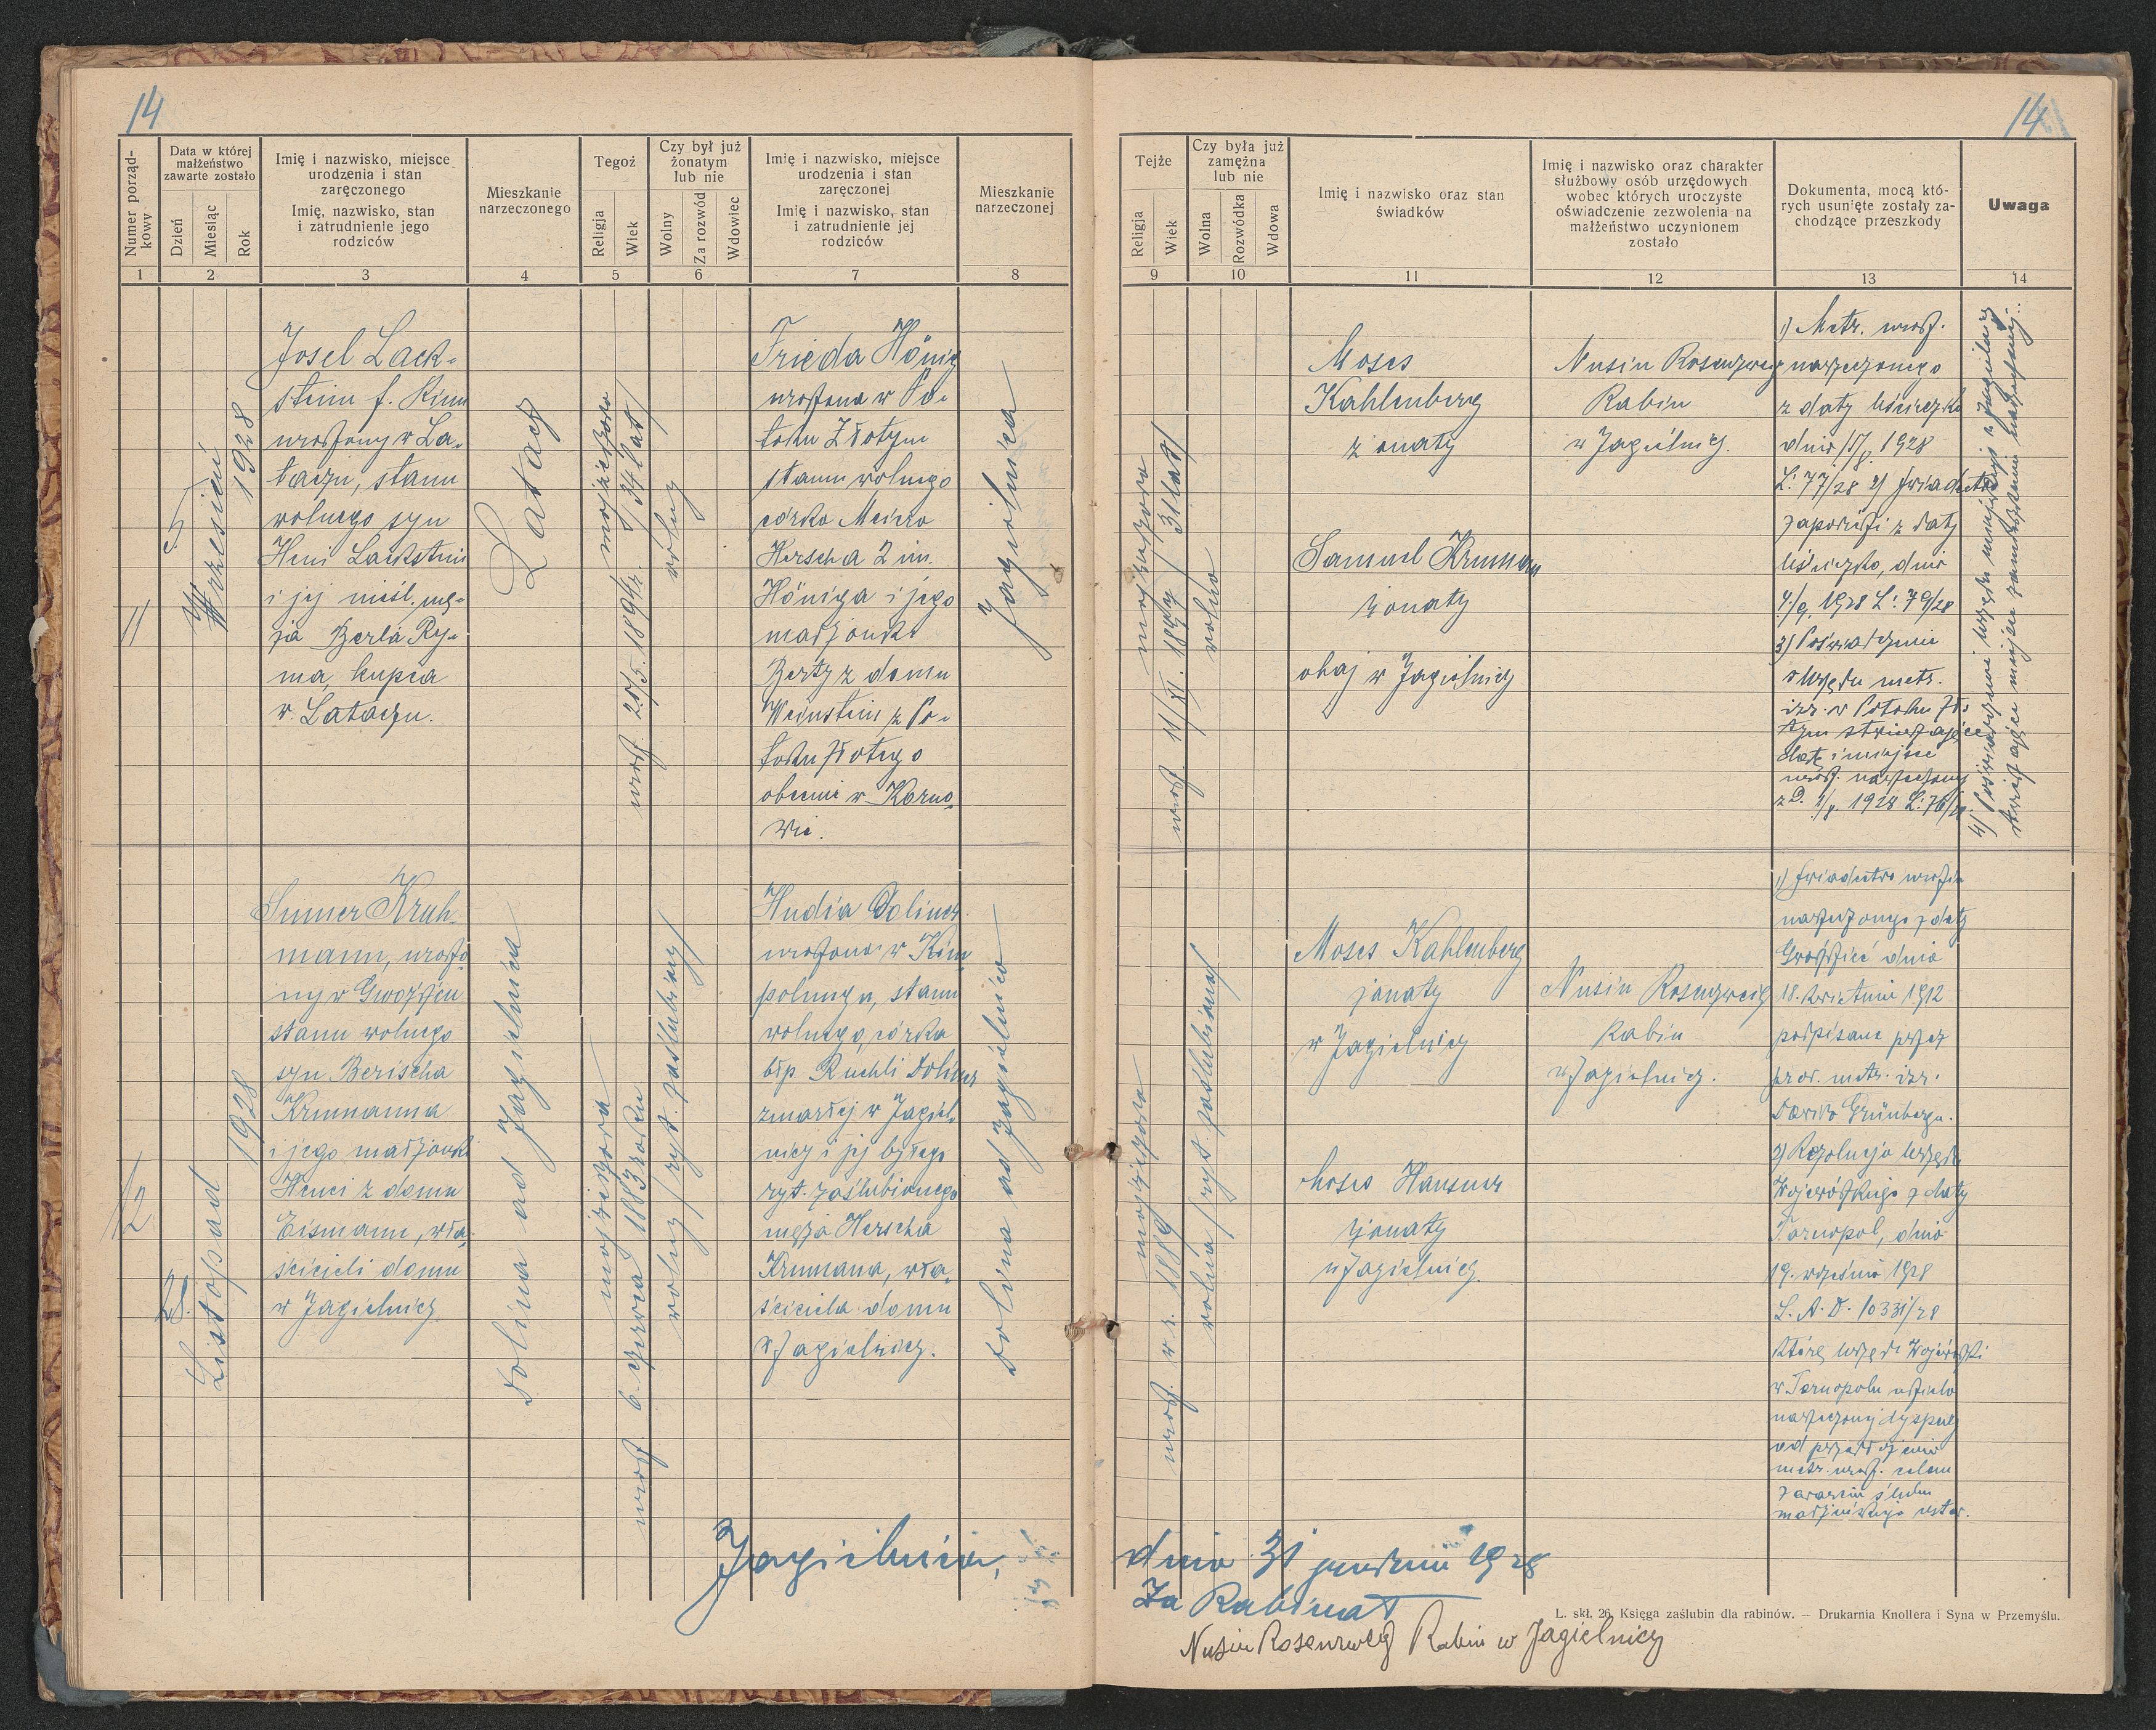 14
14
Numer porząd-
kowy
Data w której
małżeństwo
zawarte zostało
Dzień
Miesiąc
Rok
Imię i nazwisko, miejsce
urodzenia i stan
zaręczonego
Imię, nazwisko, stan
i zatrudnienie jego
rodziców
Mieszkanie
narzeczonego
Tegoż
Religja
Wiek
Czy był już
żonatym
lub nie
Wolny
Za rozwód
Wdowiec
Imię i nazwisko, miejsce
urodzenia i stan
zaręczonej
Imię i nazwisko, stan
i zatrudnienie jej
rodziców
Mieszkanie
narzeczonej
Tejże
Religja
Wiek
Czy była już
zamężna
lub nie
Wolna
Rozwódka
Wdowa
Imię i nazwisko oraz stan
świadków
Imię i nazwisko oraz charakter
służbowy osób urzędowych
wobec których uroczyste
oświadczenie zezwolenia na
małżeństwo uczynionem
zostało
Dokumenta, mocą któ-
rych usunięte zostały za-
chodzące przeszkody
Uwaga
1 2 3 4 5 6 7 8 9 10 11 12 13 14
11
5
Wrzesień
1928
Josel Lack-
stein f. Rim
urodzony w La-
taczu, stanu
wolnego syn
Heni Lackstein
i jej nieśl. mę-
ża Berla Ry-
ma, kupca
w Lataczu.
Latacz
mojżeszowa
urodz. 20/5. 1894r. / 34 lat /
wolny
Frieda Hönig
urodzona w Po-
toku Złotym
stanu wolnego
córka Meiera
Herscha 2 im.
Höniga i jego
małżonki
Berty z domu
Weinstein, z Po-
toku Złotego
obecnie w
Jagielnica
mojżeszowa
/ 31 lat /
wolna
Moses
Kahlenberg
żonaty
Samuel Kruman
żonaty
obaj w Jagielnicy
Nusin Rosenzweig
Rabin
w Jagielnicy.
1) Metr. urodz.
narzeczonego
z daty Uścieczko
1928
L: 77/28 2) świadectwo
zapowiedzi z daty
Uścieczko, dnia
4./9. 1928 L: 79/28
3) Poświadczenie
Urzędu metr.
izr. w Potoku Zło
tym stwierdzające
datę i miejsce
urodz. narzeczonej
1928 L: 76/28
4) Poświadczenie Urzędu
12
28.
Listopad
1928
Sumer Kruh-
mann, urodzo-
ny w Gwoźdźcu
stanu wolnego
syn Berischa
Krumanna
i jego małżonki
Henci z domu
Eismann, wła-
ścicieli domu
w Jagielnicy
Dolina ad Jagielnica
mojżeszowa
urodz. 6 czerwca 1883 roku
wolny / ryt. zaślubiony /
Hudia Doliner
urodzona w Kim-
polungu, stanu
wolnego, córka
błp. Ruchli Doliner
zmarłej w Jagiel-
nicy i jej byłego
ryt. zaślubionego
męża Herscha
Krumana, wła-
ściciela domu
w Jagielnicy.
Dolina ad Jagielnica
mojżeszowa
urodz. w r. 1889
wolna / ryt. zaślubiona /
Moses Kahlenberg
żonaty
w Jagielnicy
Moses
żonaty
w Jagielnicy
Nusin Rosenzweig
Rabin
w Jagielnicy.
1) świadectwo urodzin
narzeczonego z daty
Gwoździec dnia
18. kwietnia 1912
podpisane przez
prow. metr. izr.
Dawida Grünberga.
2) Rezolucja Urzędu
Wojewódzkiego z daty
Tarnopol, dnia
19. września 1928
L. A. D. 10331/28
którą Urząd Wojewódzki
w Tarnopolu udzielił
narzeczonej dyspensy
od przedłożenia
metr. urodz. celem
zawarcia ślubu
małżeńskiego
Jagielnica,
dnia 31 grudnia 1928
Za Rabinat
Nusin Rosenzweig Rabin w Jagielnicy
L. skł. 26. Księga zaślubin dla rabinów. — Drukarnia Knollera i Syna w Przemyślu.